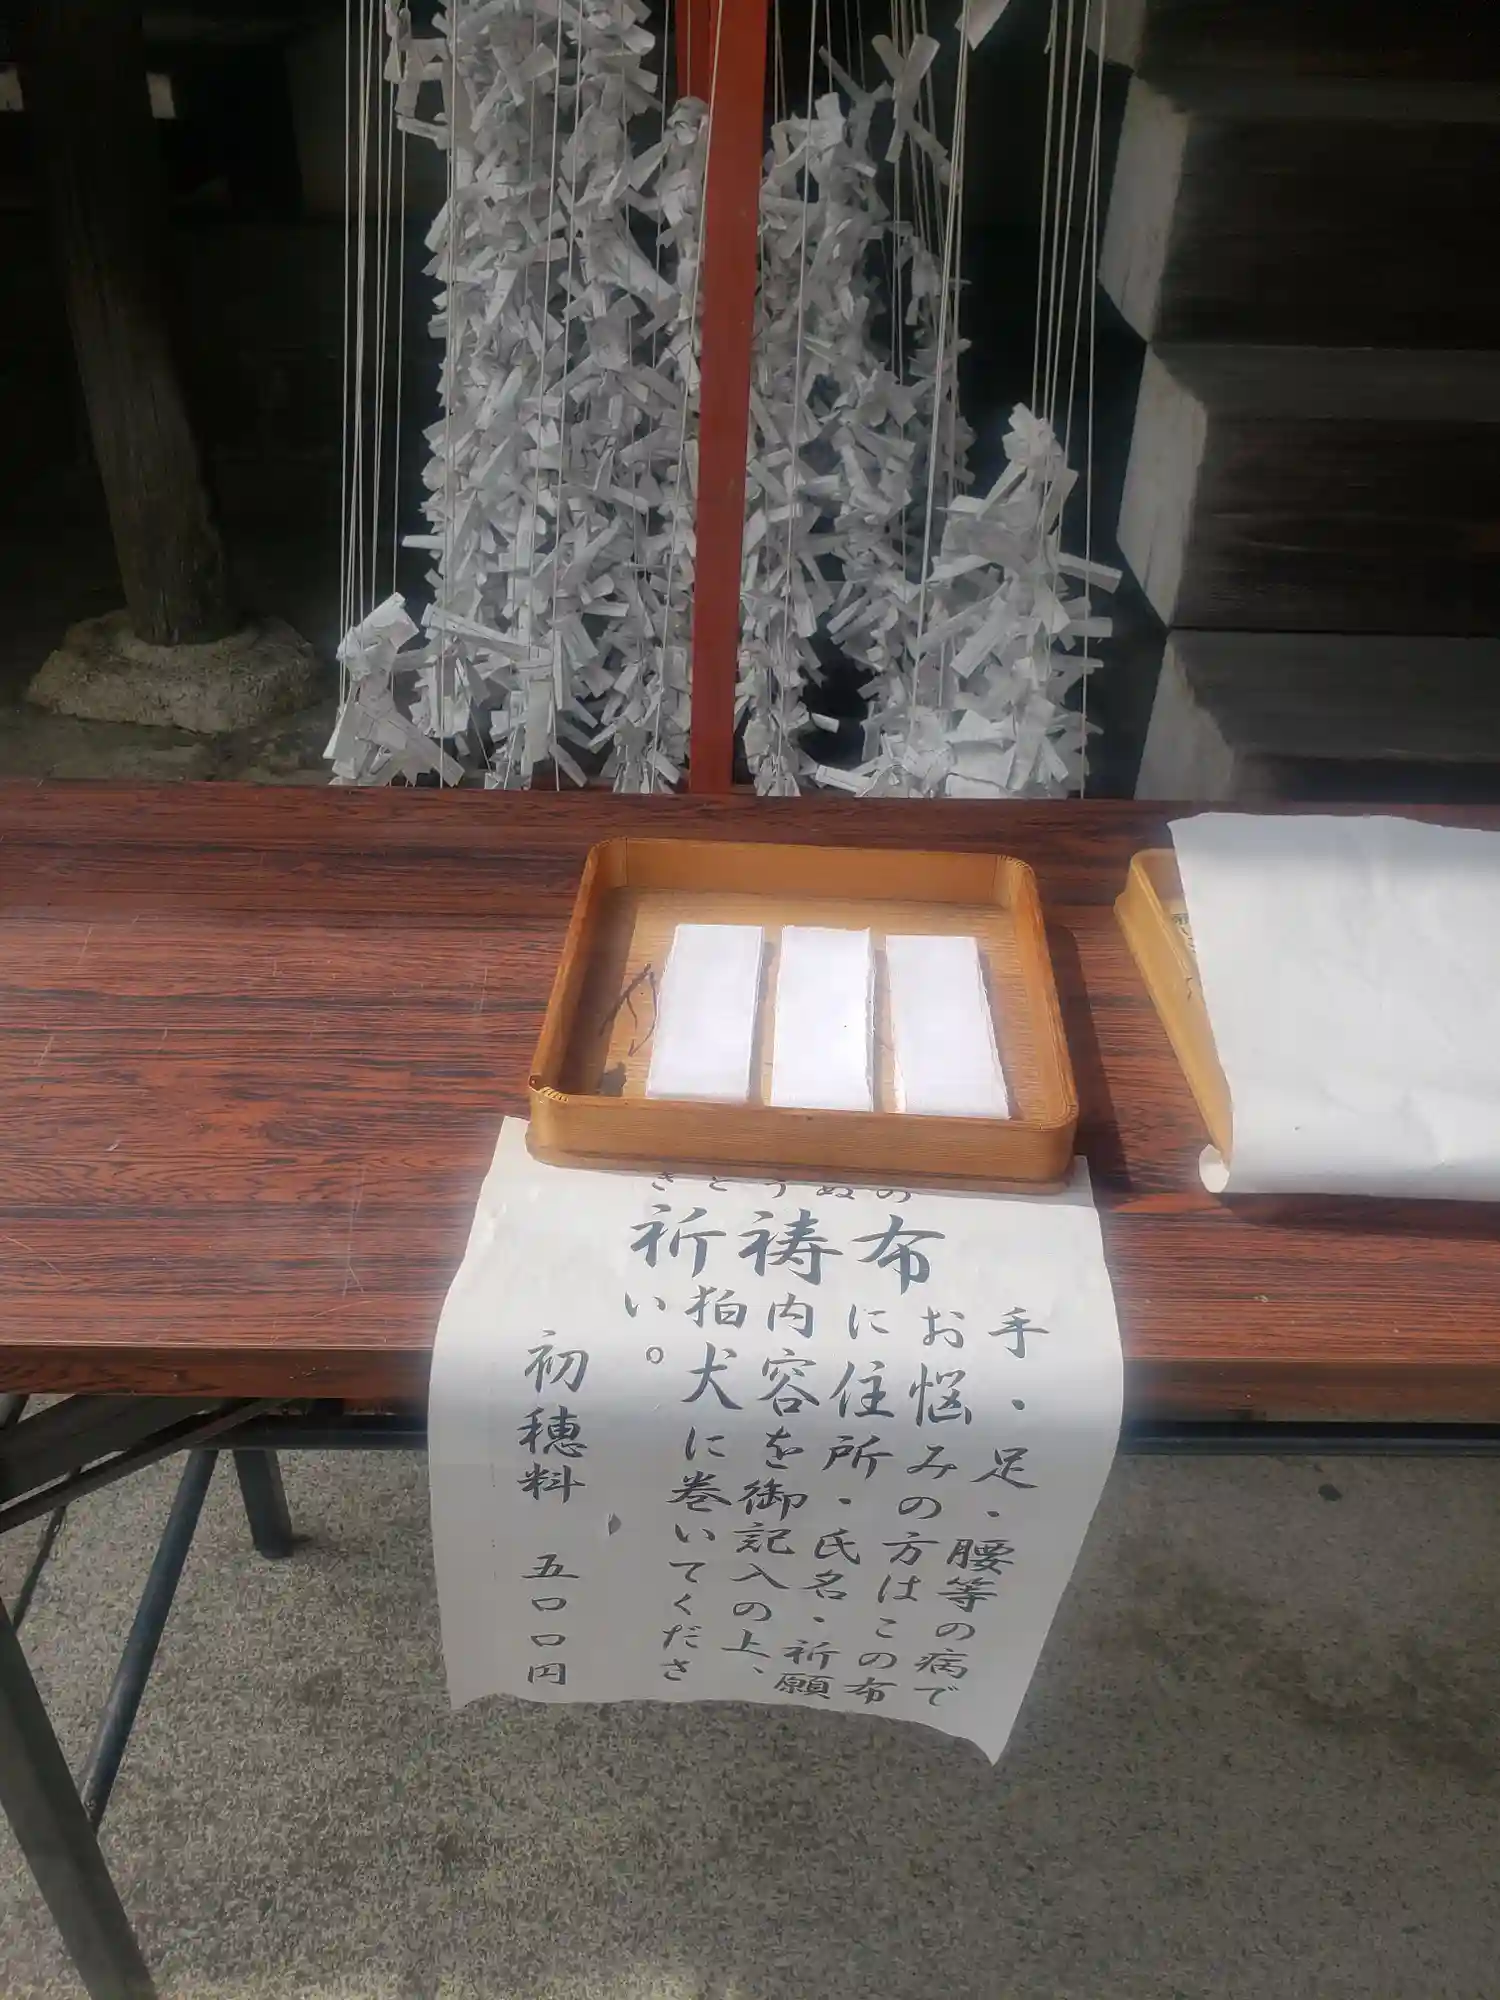 きとうぬの
祈祷布
手・足・腰等の病で
お悩みの方はこの布
に住所・氏名・祈願
内容を御記入の上、
狛犬に巻いてくださ
い。
初穂料 五〇〇円